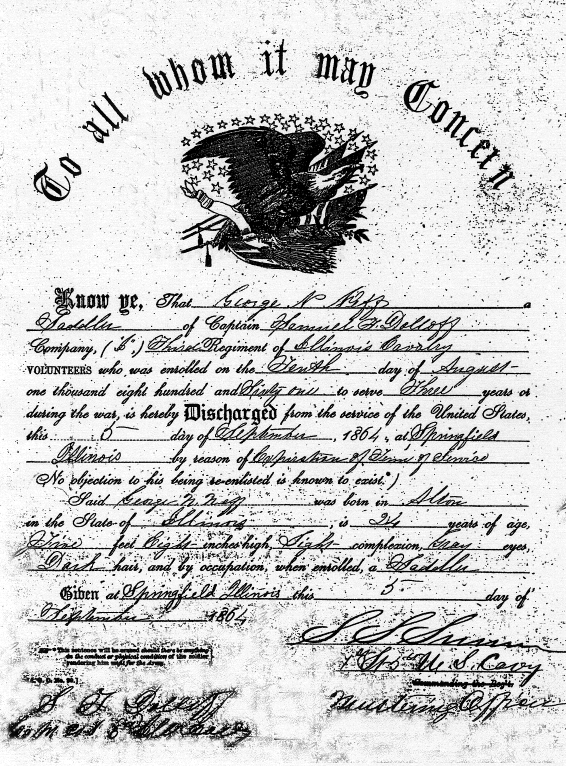 To all whom it may Concern
Know ye, That George N. Neff a
Saddler of Captain Samuel F. Dolloff
Company, ("L.") Third Regiment of Illinois Cavalry
VOLUNTEERS who was enrolled on the Tenth day of August
one thousand eight hundred and Sixty one to serve Three years or
during the war, is hereby Discharged from the service of the United States,
this 5 day of September, 1864, at Springfield
Illinois by reason of Expiration of Term of Service
(No objection to his being re-enlisted is known to exist.*)
Said George N. Neff was born in Alton
in the State of Illinois, is 24 years of age,
Five feet Eight inches high, Light complexion, Gray eyes,
Dark hair, and by occupation, when enrolled, a Saddler
Given at Springfield Illinois this 5 day of
September 1864
*This sentence will be erased should there be anything
in the conduct or physical condition of the soldier
rendering him unfit for the Army.
1st U.S. Cavy
Commanding the Regt.
Mustering Officer
S F Dolloff